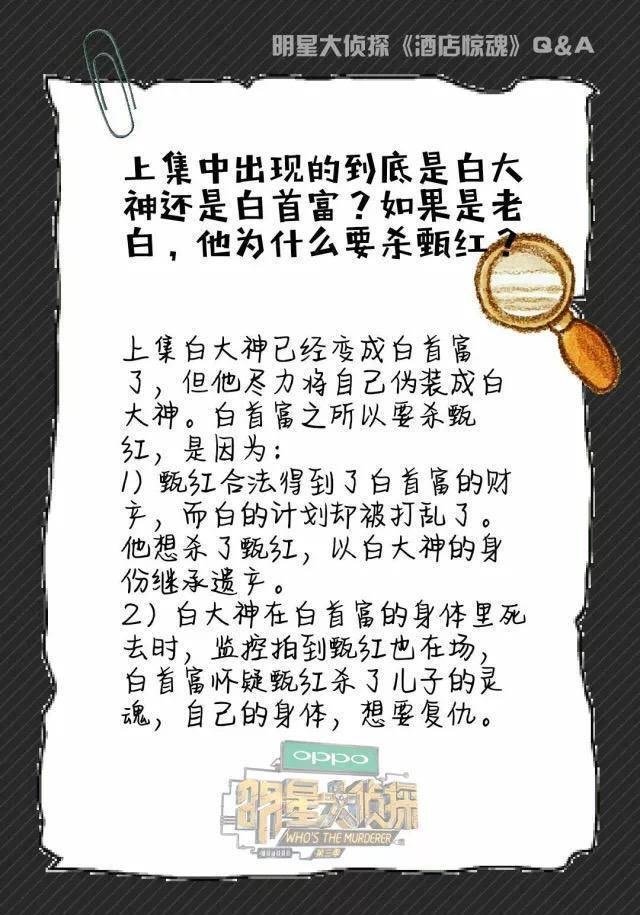 明星大侦探《酒店惊魂》Q&A
上集中出现的到底是白大
神还是白首富？如果是老
白，他为什么要杀甄红？
上集白大神已经变成白首富
了，但他尽力将自己伪装成白
大神。白首富之所以要杀甄
红，是因为：
1）甄红合法得到了白首富的财
产，而白的计划却被打乱了。
他想杀了甄红，以白大神的身
份继承遗产。
2）白大神在白首富的身体里死
去时，监控拍到甄红也在场，
白首富怀疑甄红杀了儿子的灵
魂，自己的身体，想要复仇。
oppo
明星大侦探
WHO'S THE MURDERER
第三季